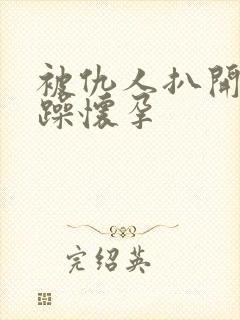 被仇人扒開
躁懷孕
完绍英